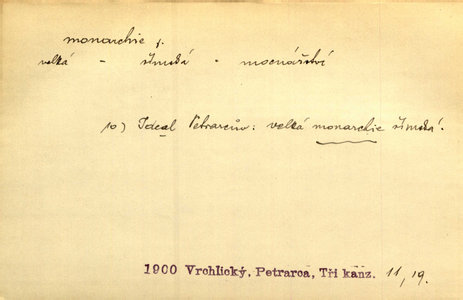 monarchie f.
velká - římská - mocnářství
10) Ideal Petrarcův: velká monarchie římská.
1900 Vrchlický, Petrarca, Tři kanz. 11/19.